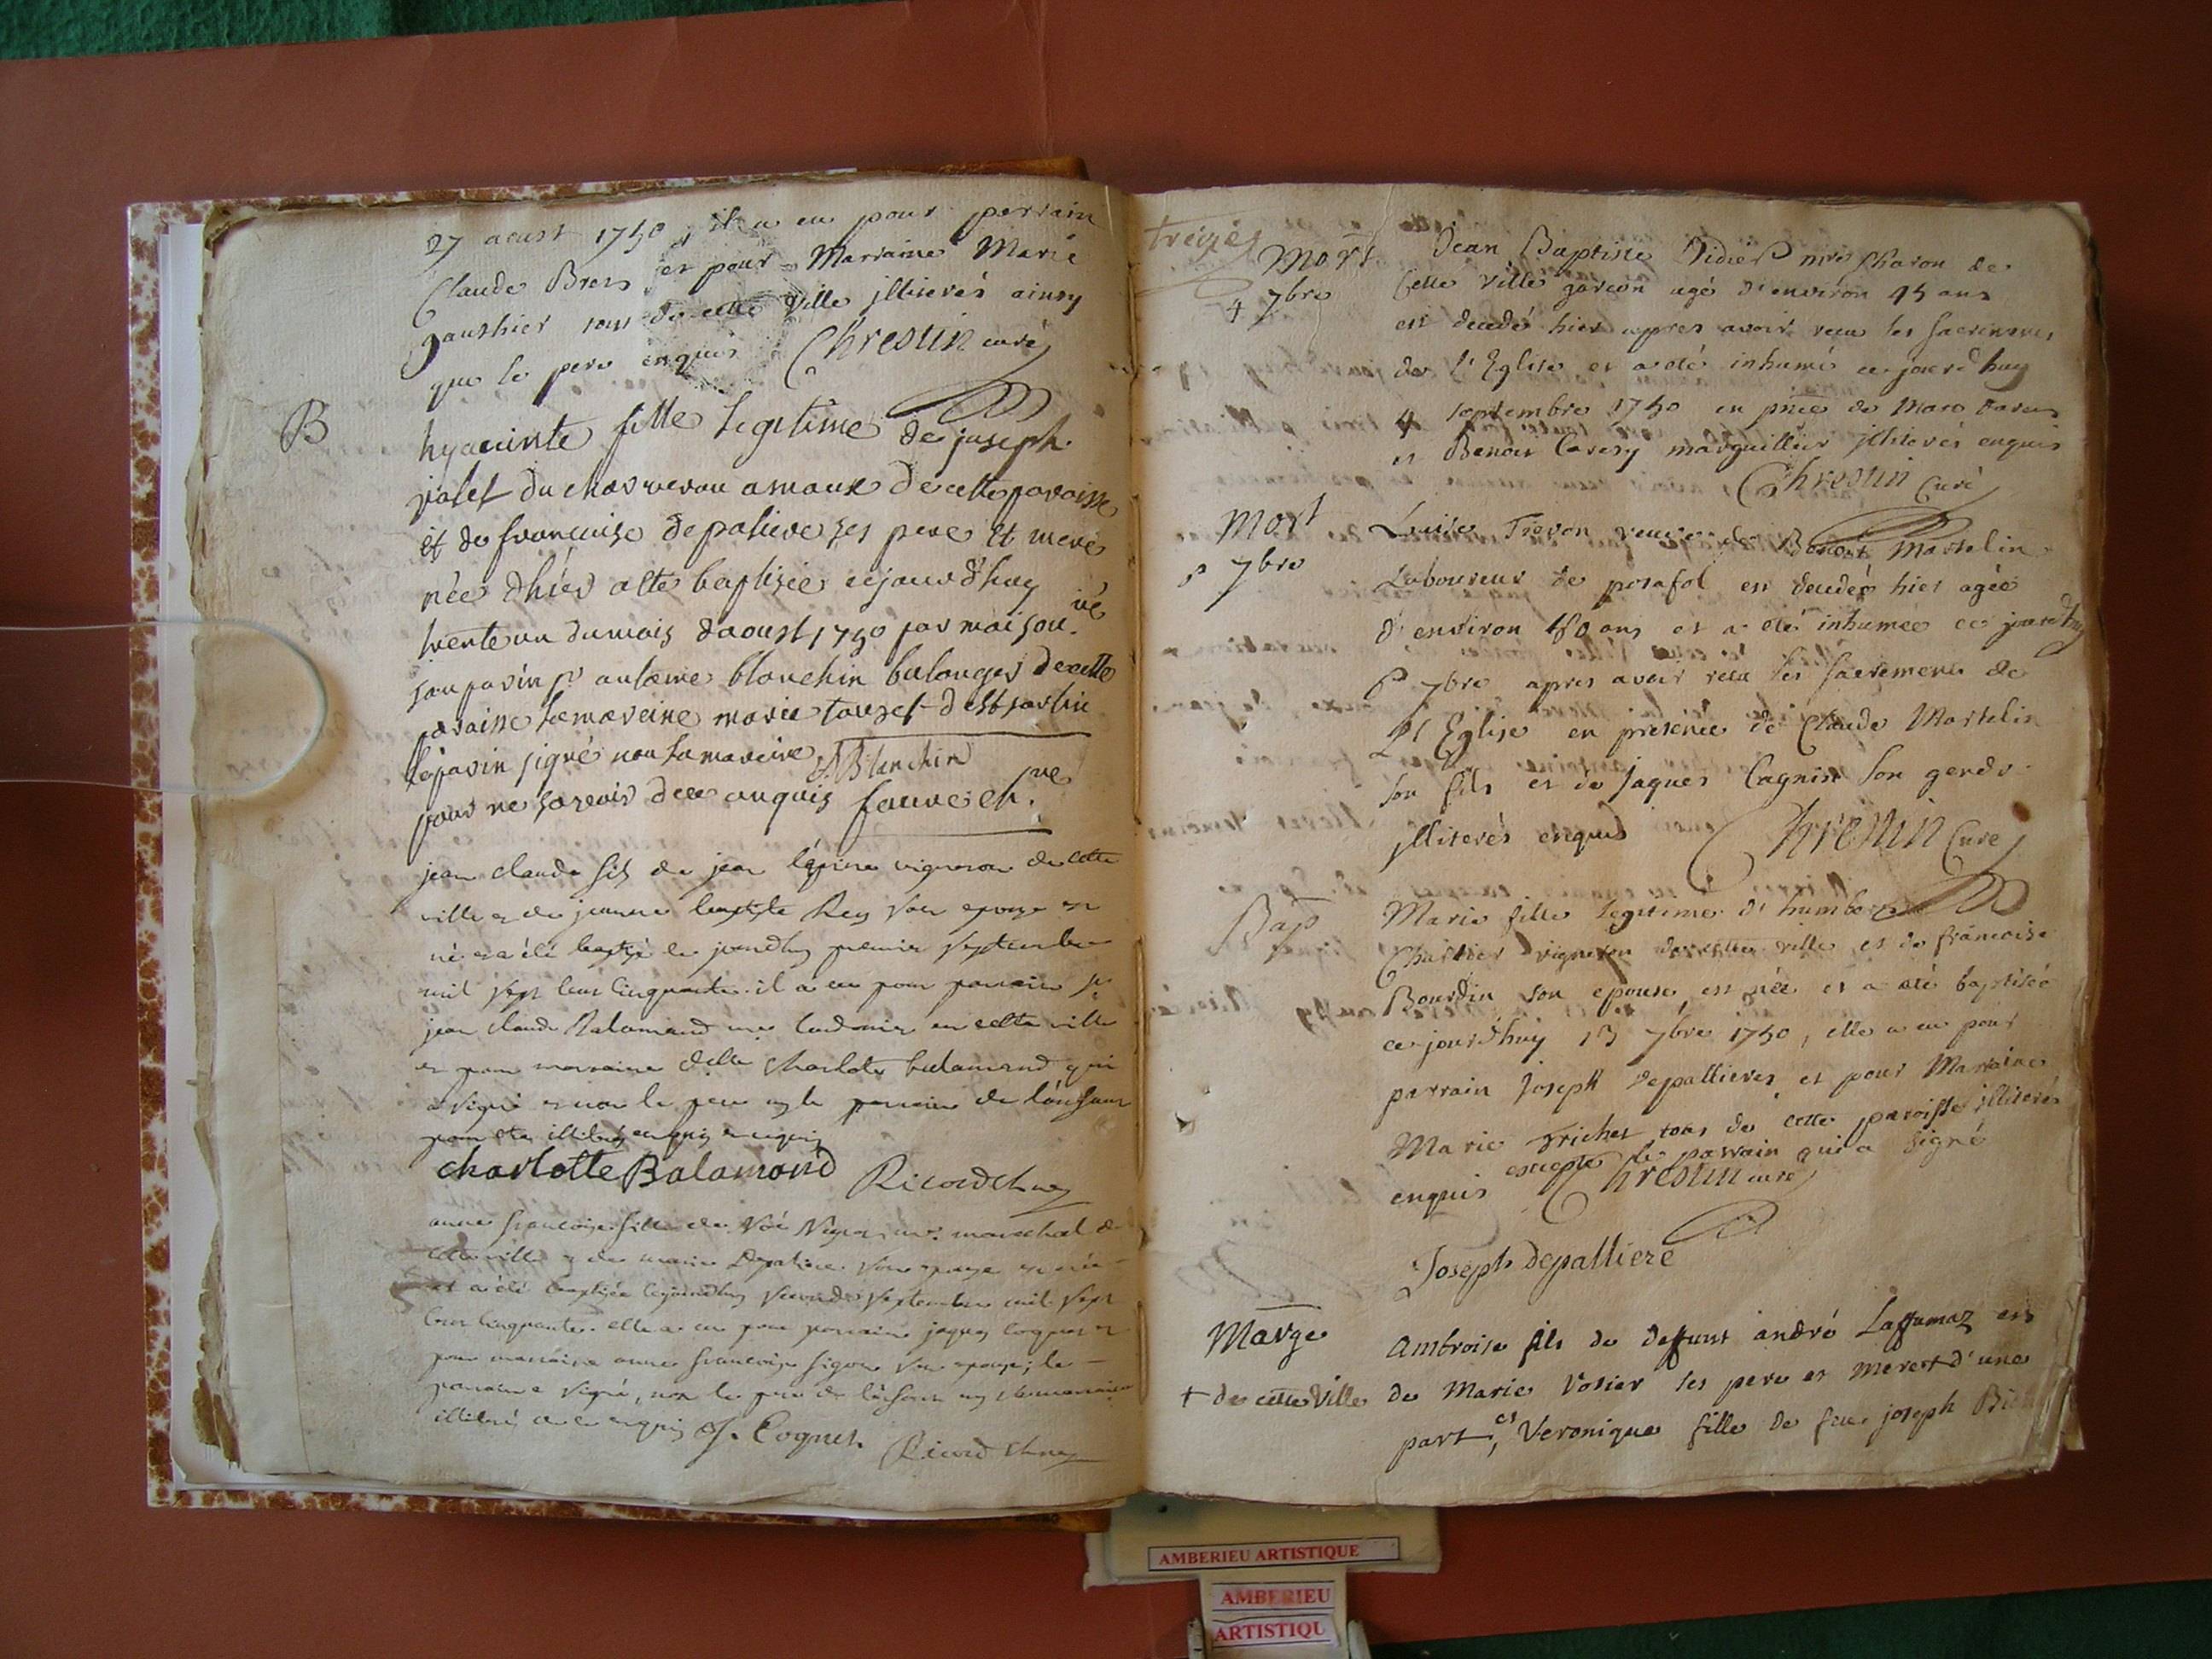 27 aoust 1750, il a eu pour parrain
Claude Brers et pour Marraine Marie
Gauthier tous de cette Ville illiterés ainsy
que le pere enquis Chrestin curé
B
hyacinte fille legitime de joseph
jalet du
et de francoise depaliere ses pere et mere
née dhier a ete baptisée cejourdhuy
trente un dumois daoust 1750 par moi sou. né
son parin sr antoine blanchin bulonger de cette
paroisse la mareine marie
le parin signé non la mareine Blanchin
pour ne scavoir de ce enquis fauvre ch. ne
jean claude fils de jean lépine vigneron de cette
ville et de jeanne baptiste Rey son epouse est
né et a été baptisé ce jourdhuy premier septembre
mil sept cent cinquante. il a eu pour parrain sr
jean claude Balamand me cordonier en cette ville
et pour marraine delle charlotte balamand qui
a signé et non le pere ny le parrain de l'enfant
pour etre illitérés enquis
charlotte Balamand Ricard
anne francoise fille de me marechal de
cette ville et de marie Depaliere son epouse est née
et a été baptisée cejourdhuy second septembre mil sept
cent cinquante. elle a eu pour parrain jaques cognet et
pour marraine anne francoise son epouse; le
parrain a signé, non le pere de l'enfant ny la marraine
illitérés de ce enquis J. Cognet. Ricard
treize
Mort
4 7bre
Jean Baptiste Didier mre Charon de
Cette Ville garcon agé d'environ 45 ans
est decedé hier apres avoir receu les sacremens
de l'Eglise et a eté inhumé ce jourdhuy
4 septembre 1750 en pnce de Marc
et Benoit Caresy marguillier illiterés enquis
Chrestin Curé
Mort
7bre
Luise Trevon veuve de Benoit Martelin
Laboureur de posafol est decedée hier agée
d'environ 80 ans et a eté inhumée ce jourdhuy
6 7bre apres avoir receu les sacremens de
L'Eglise en presence de Claude Martelin
son fils et de Jaques Cagnin son gendre
illiterés enquis Chrestin Curé
Bap
Marie fille legitime d'humbert
Charvier vigneron de cette ville et de francoise
Bourdin son epouse est née et a eté baptisée
ce jourdhuy 13 7bre 1750, elle a eu pour
parrain Joseph depallieres et pour Marraine
Marie Trichet tous de cette paroisse illiterés
enquis excepté le parrain qui a signé
Chrestin curé
Joseph depalliere
Marge
+ de cette Ville
Ambroise fils de deffunt andré Laffumaz et
de Marie Vosier ses pere et mere + d'une
part, et Veronique fille de feu joseph
AMBERIEU ARTISTIQUE
AMBERIEU
ARTISTIQU